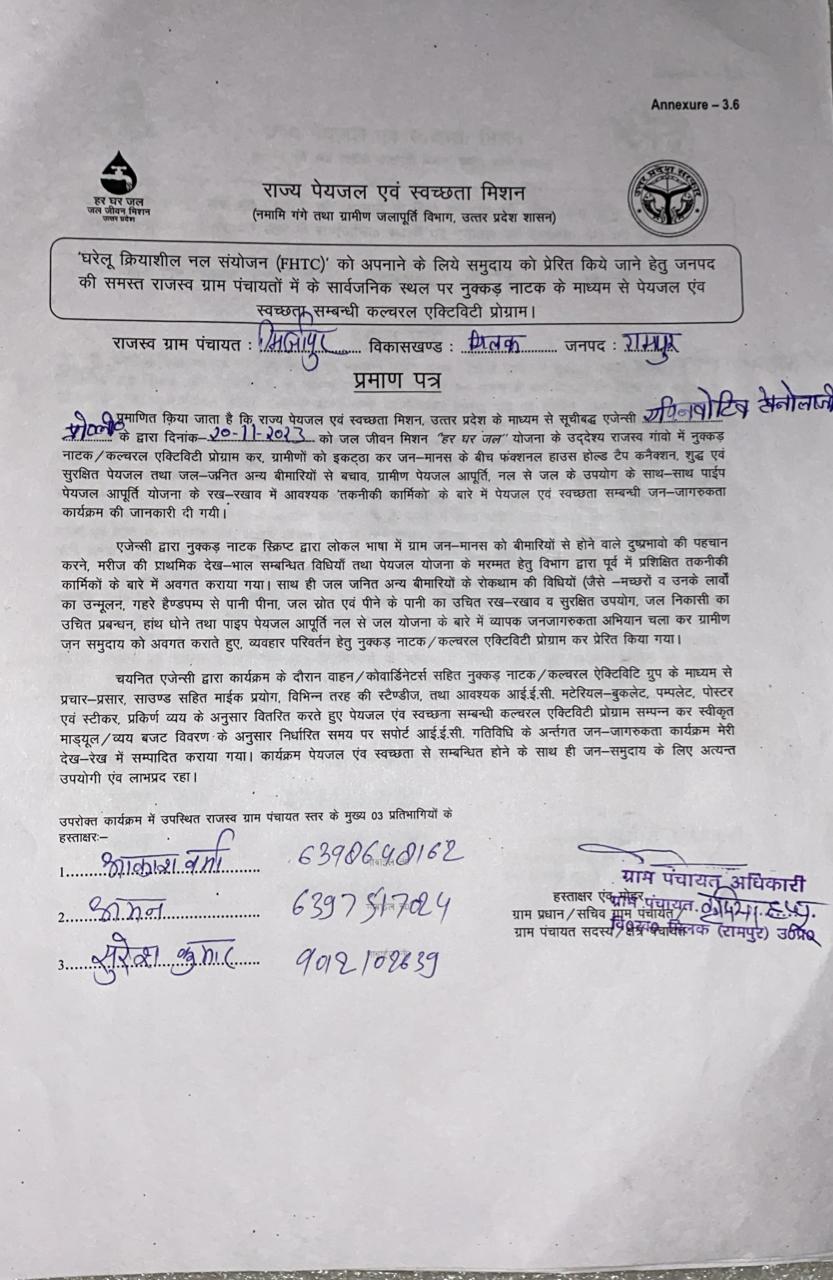 Annexure – 3.6
हर घर जल
जल जीवन मिशन
उत्तर प्रदेश
राज्य पेयजल एवं स्वच्छता मिशन
(नमामि गंगे तथा ग्रामीण जलापूर्ति विभाग, उत्तर प्रदेश शासन)
उत्तर प्रदेश सरकार
'घरेलू क्रियाशील नल संयोजन (FHTC)' को अपनाने के लिये समुदाय को प्रेरित किये जाने हेतु जनपद
की समस्त राजस्व ग्राम पंचायतों में के सार्वजनिक स्थल पर नुक्कड़ नाटक के माध्यम से पेयजल एंव
स्वच्छता सम्बन्धी कल्चरल एक्टिविटी प्रोग्राम।
राजस्व ग्राम पंचायत : मिर्जापुर विकासखण्ड : मिलक जनपद : रामपुर
प्रमाण पत्र
प्रमाणित किया जाता है कि राज्य पेयजल एवं स्वच्छता मिशन, उत्तर प्रदेश के माध्यम से सूचीबद्ध एजेन्सी
के द्वारा दिनांक–20-11-2023 को जल जीवन मिशन "हर घर जल" योजना के उद्देश्य राजस्व गांवो में नुक्कड़
नाटक/कल्चरल एक्टिविटी प्रोग्राम कर, ग्रामीणों को इकट्ठा कर जन–मानस के बीच फंक्शनल हाउस होल्ड टैप कनैक्शन, शुद्ध एवं
सुरक्षित पेयजल तथा जल–जनित अन्य बीमारियों से बचाव, ग्रामीण पेयजल आपूर्ति, नल से जल के उपयोग के साथ–साथ पाईप
पेयजल आपूर्ति योजना के रख–रखाव में आवश्यक 'तकनीकी कार्मिको' के बारे में पेयजल एवं स्वच्छता सम्बन्धी जन–जागरुकता
कार्यक्रम की जानकारी दी गयी।
एजेन्सी द्वारा नुक्कड़ नाटक स्क्रिप्ट द्वारा लोकल भाषा में ग्राम जन–मानस को बीमारियों से होने वाले दुष्प्रभावो की पहचान
करने, मरीज की प्राथमिक देख–भाल सम्बन्धित विधियाँ तथा पेयजल योजना के मरम्मत हेतु विभाग द्वारा पूर्व में प्रशिक्षित तकनीकी
कार्मिकों के बारे में अवगत कराया गया। साथ ही जल जनित अन्य बीमारियों के रोकथाम की विधियों (जैसे –मच्छरों व उनके लार्वो
का उन्मूलन, गहरे हैण्डपम्प से पानी पीना, जल स्रोत एवं पीने के पानी का उचित रख–रखाव व सुरक्षित उपयोग, जल निकासी का
उचित प्रबन्धन, हांथ धोने तथा पाइप पेयजल आपूर्ति नल से जल योजना के बारे में व्यापक जनजागरुकता अभियान चला कर ग्रामीण
जन समुदाय को अवगत कराते हुए, व्यवहार परिवर्तन हेतु नुक्कड़ नाटक/कल्चरल एक्टिविटी प्रोग्राम कर प्रेरित किया गया।
चयनित एजेन्सी द्वारा कार्यक्रम के दौरान वाहन/कोवार्डिनेटर्स सहित नुक्कड़ नाटक/कल्चरल ऐक्टिविटि ग्रुप के माध्यम से
प्रचार–प्रसार, साउण्ड सहित माईक प्रयोग, विभिन्न तरह की स्टैण्डीज, तथा आवश्यक आई.ई.सी. मटेरियल–बुकलेट, पम्पलेट, पोस्टर
एवं स्टीकर, प्रकिर्ण व्यय के अनुसार वितरित करते हुए पेयजल एंव स्वच्छना सम्बन्धी कल्चरल एक्टिविटी प्रोग्राम सम्पन्न कर स्वीकृत
माड्यूल/व्यय बजट विवरण के अनुसार निर्धारित समय पर सपोर्ट आई.ई.सी. गतिविधि के अर्न्तगत जन–जागरुकता कार्यक्रम मेरी
देख–रेख में सम्पादित कराया गया। कार्यक्रम पेयजल एंव स्वच्छता से सम्बन्धित होने के साथ ही जन–समुदाय के लिए अत्यन्त
उपयोगी एंव लाभप्रद रहा।
उपरोक्त कार्यक्रम में उपस्थित राजस्व ग्राम पंचायत स्तर के मुख्य 03 प्रतिभागियों के
हस्ताक्षरः–
1. आकाश वर्मा 6398648162
2. अमन 6397517024
3. सुरेश कुमार 9012102639
ग्राम पंचायत अधिकारी
हस्ताक्षर एंव मोहर
ग्राम पंचायत
ग्राम प्रधान/सचिव ग्राम पंचायत/
ग्राम पंचायत सदस्य/क्षेत्र पंचायत
वि०ख० मिलक (रामपुर) उ०प्र०